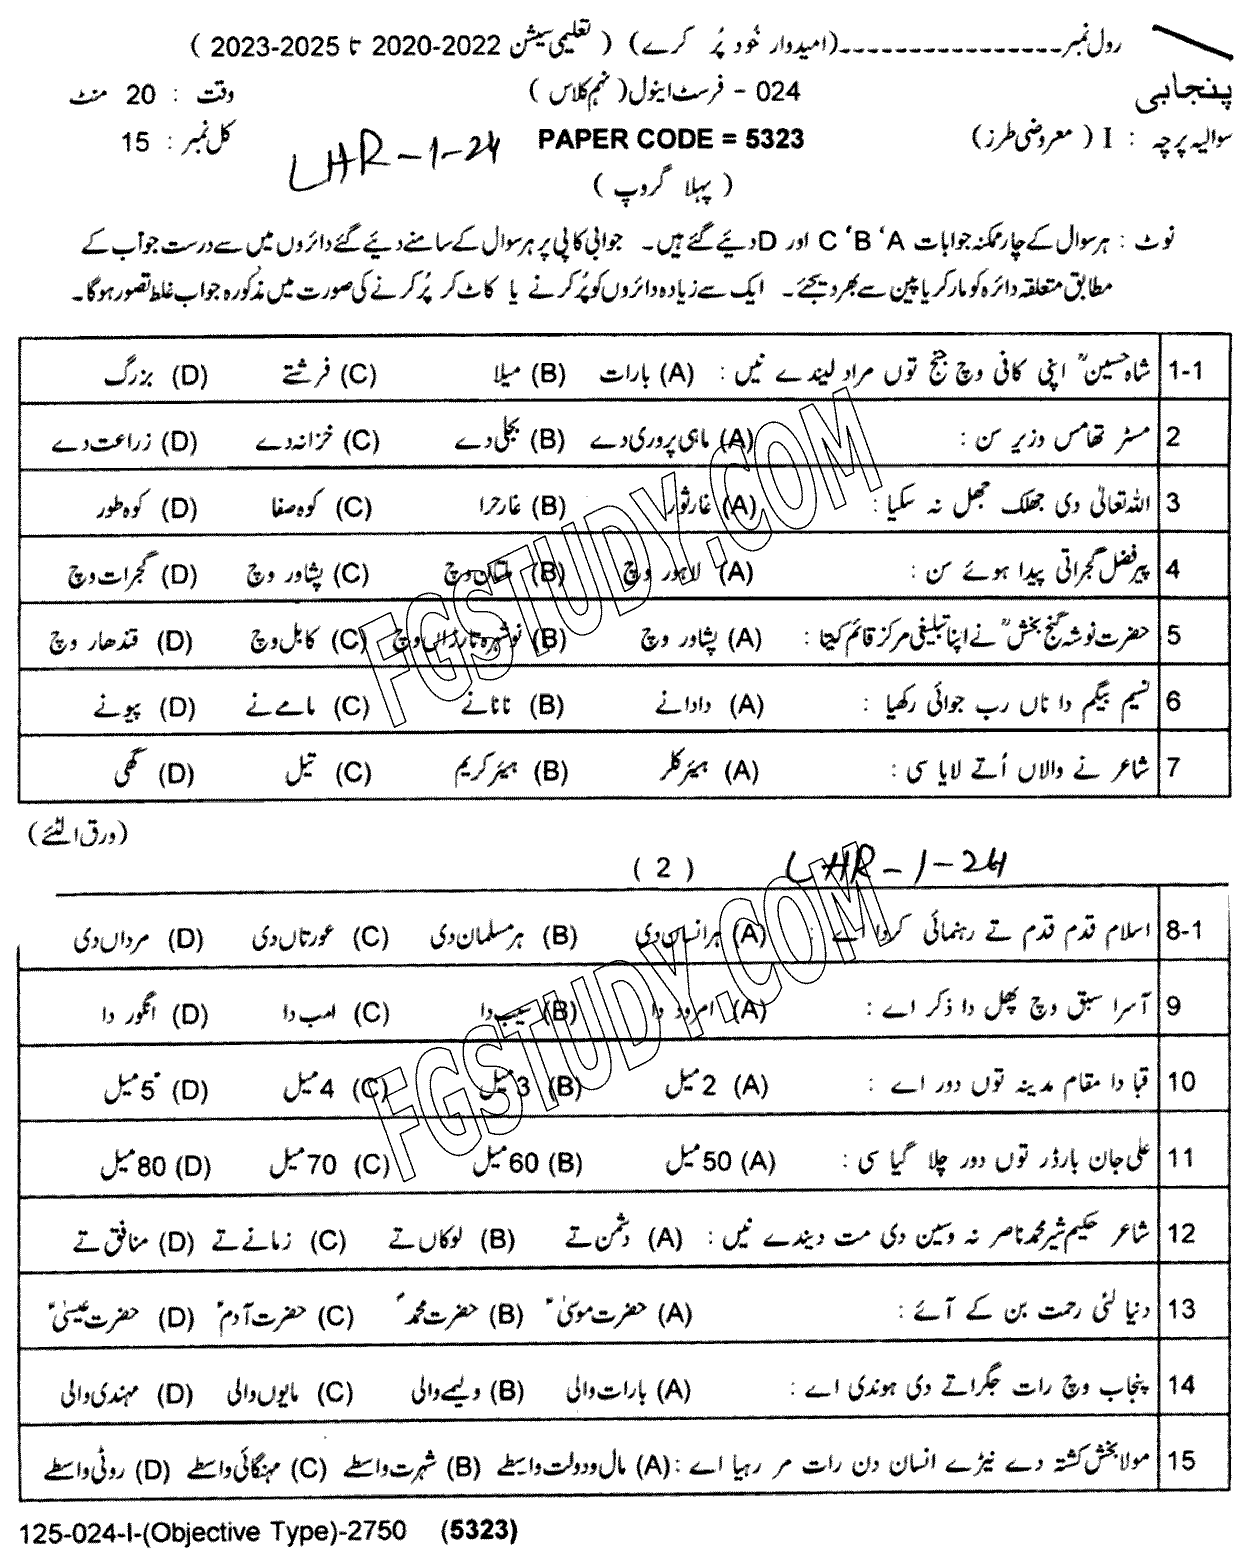 رول نمبر ـــــــــــــــــــ (امیدوار خُود پُر کرے) ( تعلیمی سیشن 2022-2020 تا 2025-2023 )
پنجابی 024 - فرسٹ اینول (نہم کلاس) وقت : 20 منٹ
سوالیہ پرچہ : I ( معروضی طرز) PAPER CODE = 5323 کل نمبر : 15
LHR-1-24
( پہلا گروپ )
نوٹ : ہر سوال کے چار ممکنہ جوابات A ' B ' C اور D دیئے گئے ہیں۔ جوابی کاپی پر ہر سوال کے سامنے دیئے گئے دائروں میں سے درست جواب کے
مطابق متعلقہ دائرہ کو مارکر یا پین سے بھر دیجئے۔ ایک سے زیادہ دائروں کو پُر کرنے یا کاٹ کر پُر کرنے کی صورت میں مذکورہ جواب غلط تصور ہوگا۔
1-1 شاہ حسینؒ اپنی کافی وچ جنج توں مراد لیندے نیں : (A) بارات (B) میلا (C) فرشتے (D) بزرگ
2 مسٹر تھامس وزیر سن : (A) ماہی پروری دے (B) بجلی دے (C) خزانہ دے (D) زراعت دے
3 اللہ تعالیٰ دی جھلک جھل نہ سکیا : (A) غار ثور (B) غار حرا (C) کوہ صفا (D) کوہ طور
4 پیر فضل گجراتی پیدا ہوئے سن : (A) لاہور وچ (B) ملتان وچ (C) پشاور وچ (D) گجرات وچ
5 حضرت نوشہ گنج بخشؒ نے اپنا تبلیغی مرکز قائم کیتا : (A) پشاور وچ (B) نوشہرہ تارڑاں وچ (C) کابل وچ (D) قندھار وچ
6 نسیم بیگم دا ناں رب جوائی رکھیا : (A) دادا نے (B) نانا نے (C) مامے نے (D) پیو نے
7 شاعر نے والاں اُتے لایا سی : (A) ہیئر کلر (B) ہیئر کریم (C) تیل (D) گھی
(ورق الٹئے)
( 2 ) LHR-1-24
8-1 اسلام قدم قدم تے رہنمائی کردا اے : (A) ہر انسان دی (B) ہر مسلمان دی (C) عورتاں دی (D) مرداں دی
9 آسرا سبق وچ پھل دا ذکر اے : (A) امرود دا (B) سیب دا (C) امب دا (D) انگور دا
10 قبا دا مقام مدینہ توں دور اے : (A) 2 میل (B) 3 میل (C) 4 میل (D) 5 میل
11 علی جان بارڈر توں دور چلا گیا سی : (A) 50 میل (B) 60 میل (C) 70 میل (D) 80 میل
12 شاعر حکیم شیر محمد ناصر نہ وسین دی مت دیندے نیں : (A) دشمن تے (B) لوکاں تے (C) زمانے تے (D) منافق تے
13 دنیا لئی رحمت بن کے آئے : (A) حضرت موسیٰؑ (B) حضرت محمدؐ (C) حضرت آدمؑ (D) حضرت عیسیٰؑ
14 پنجاب وچ رات جگراتے دی ہوندی اے : (A) بارات والی (B) ولیمے والی (C) مایوں والی (D) مہندی والی
15 مولا بخش کشتہ دے نیڑے انسان دن رات مر رہیا اے : (A) مال و دولت واسطے (B) شہرت واسطے (C) مہنگائی واسطے (D) روٹی واسطے
125-024-I-(Objective Type)-2750 (5323)
FGSTUDY.COM
FGSTUDY.COM